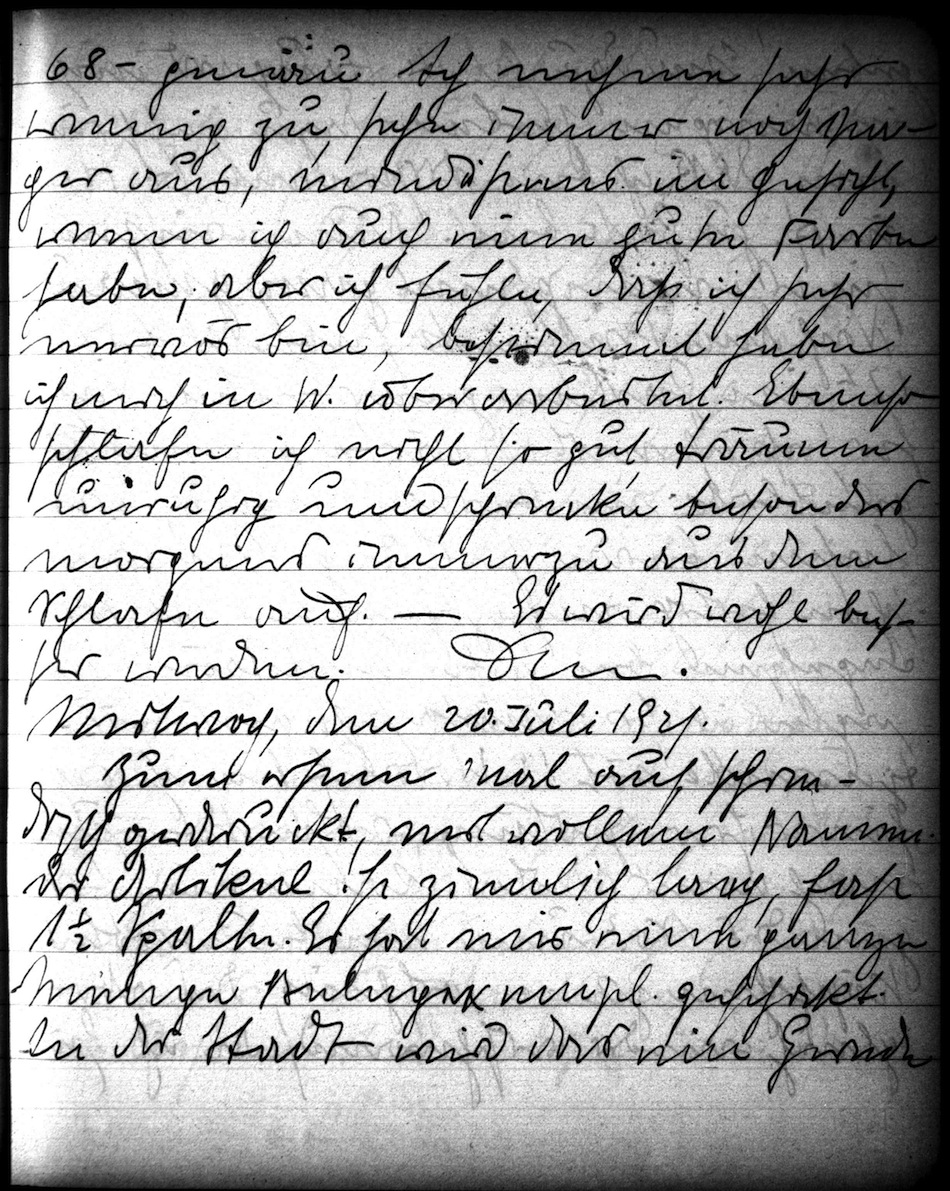 68- genau Ich nehme sehr
wenig zu, sehe immer noch ma-
ger aus, mindestens im Gesicht,
wenn ich auch eine gute Farbe
habe, aber ich fühle, dass ich sehr
nervös bin, bestimmt habe
ich mich in W. überarbeitet. Ebenso
schlafe ich nicht so gut, träume
unruhig und schrecke besonders
morgens immerzu aus dem
Schlafe auf. — Es wird wohl bes-
ser werden.
Mittwoch, den 20. Juli 1921.
Zum ersten mal auf
gedruckt, mit vollem Namen.
der Artikel ist ziemlich lang, fast
1½ Spalten. Er hat mir eine ganze
Menge Belegexempl. geschickt.
In der Stadt wird das ein Gerede